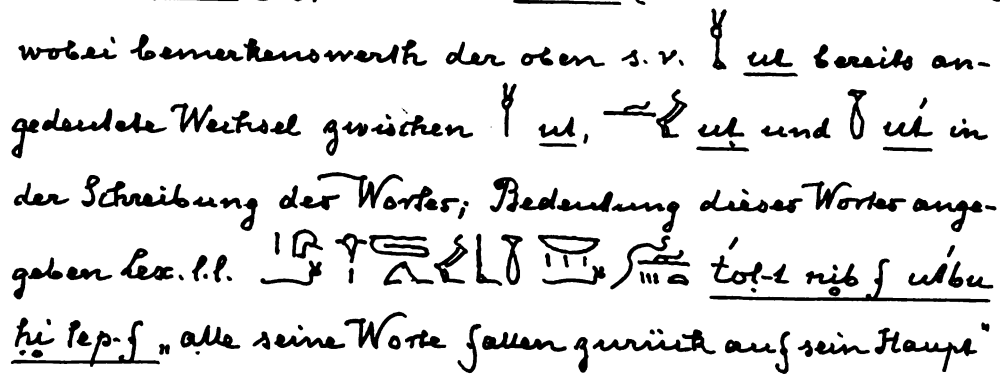 wobei bemerkenswerth der oben s. v. ut bereits an-
gedeutete Wechsel zwischen ut, uṭ und út in
der Schreibung des Wortes; Bedeutung dieses Wortes ange-
geben Lex. l. l. nib f
ḥi tep-f „alle seine Worte fallen zurück auf sein Haupt"